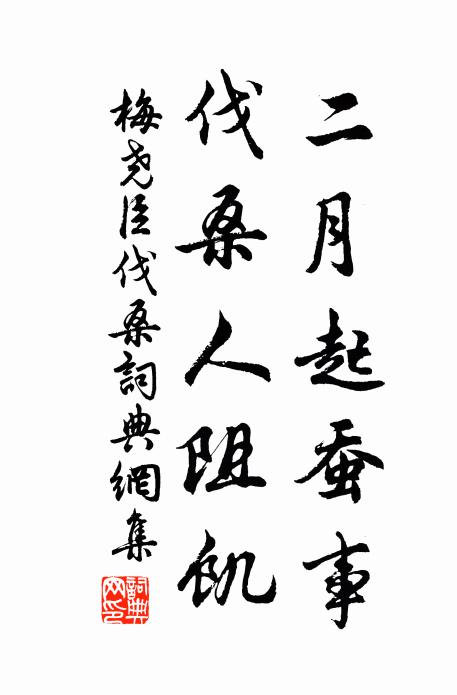 二月起蚕事
伐桑人阻饥
梅尧臣伐桑詞典網集
詞典网印